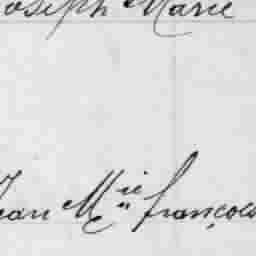 Joseph Marie
Jean Mie françois